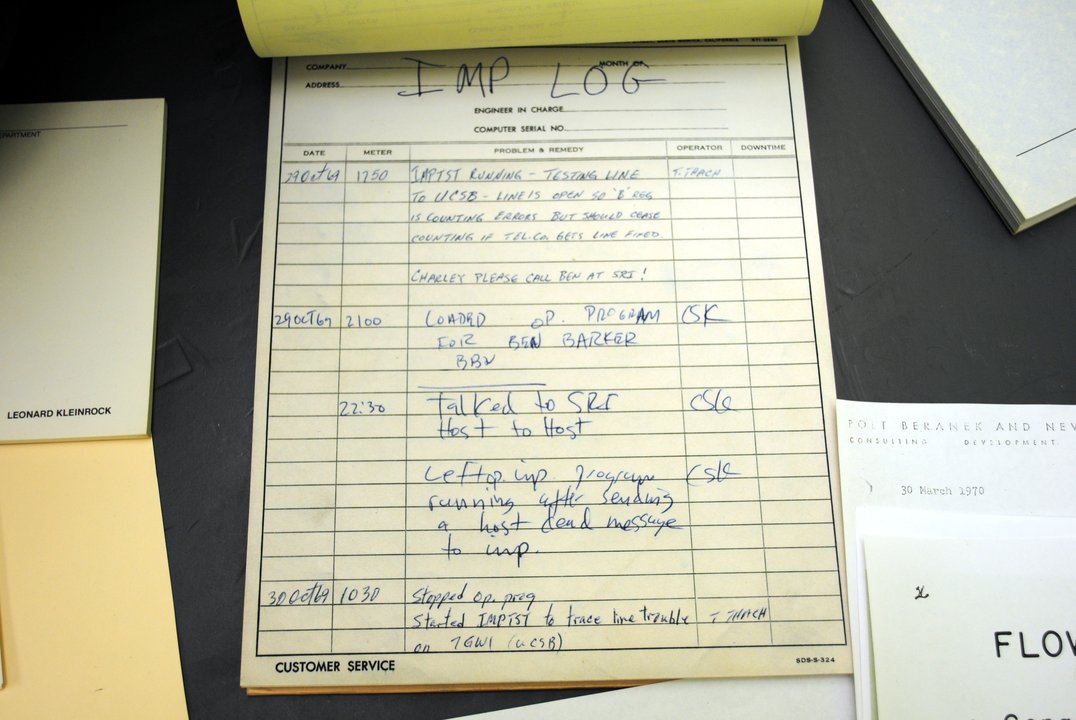 COMPANY MONTH OF
IMP LOG
ADDRESS
ENGINEER IN CHARGE
COMPUTER SERIAL NO.
DATE METER PROBLEM & REMEDY OPERATOR DOWNTIME
29Oct69 1750 IMPTST RUNNING - TESTING LINE T. THACH
TO UCSB - LINE IS OPEN SO 'B' REG
IS COUNTING ERRORS BUT SHOULD CEASE
COUNTING IF TEL.CO. GETS LINE FIXED.
CHARLEY PLEASE CALL BEN AT SRI!
29OCT69 2100 LOADED OP. PROGRAM CSK
FOR BEN BARKER
BBN
22:30 Talked to SRI CSK
Host to Host
Left op. imp. program CSK
running after sending
a host dead message
to imp.
30Oct69 1030 Stopped Op. prog
Started IMPTST to trace line trouble T THACH
on (UCSB)
CUSTOMER SERVICE SDS-S-324
LEONARD KLEINROCK
BOLT BERANEK AND NEW
CONSULTING DEVELOPMENT
30 March 1970
FLOW